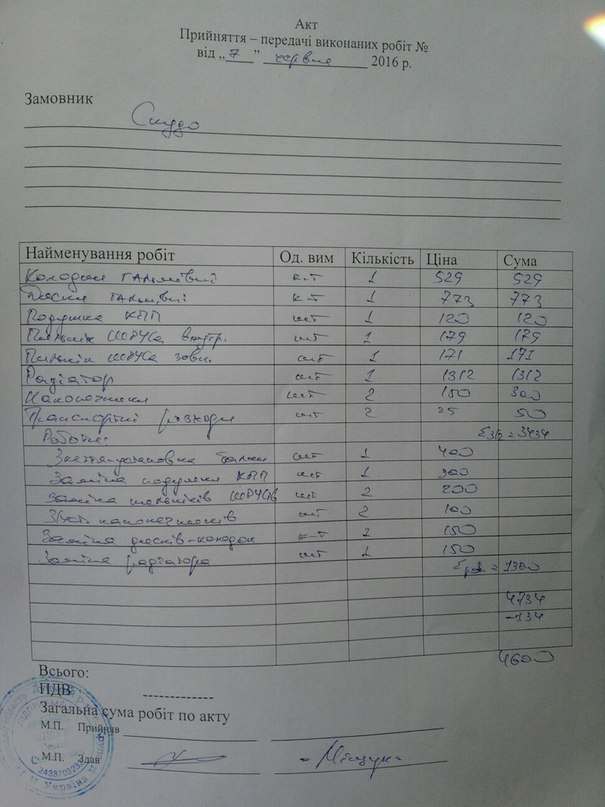 Акт
Прийняття – передачі виконаних робіт №
від „ 7 ” червня 2016 р.
Замовник
Скудо
Найменування робіт Од. вим Кількість Ціна Сума
Колодки гальмівні к-т 1 529 529
Диски гальмівні к-т 1 773 773
Подушка КПП шт 1 120 120
Пильник ШРУСа внутр. шт 1 179 179
Пильник ШРУСа зовн. шт 1 171 171
Радіатор шт 1 1312 1312
Наконечники шт 2 150 300
Транспортні розходи шт 2 25 50
Роботи: Σз/ч = 3434
Зняття-установка балки шт 1 400
Заміна подушки КПП шт 1 300
Заміна пильників ШРУСів шт 2 200
наконечників шт 2 100
Заміна дисків-колодок 1 150
Заміна радіатора шт 1 150
Σроб. = 1300
4734
-134
4600
Всього:
ПДВ
Загальна сума робіт по акту
М.П. Прийняв
М.П. Здав